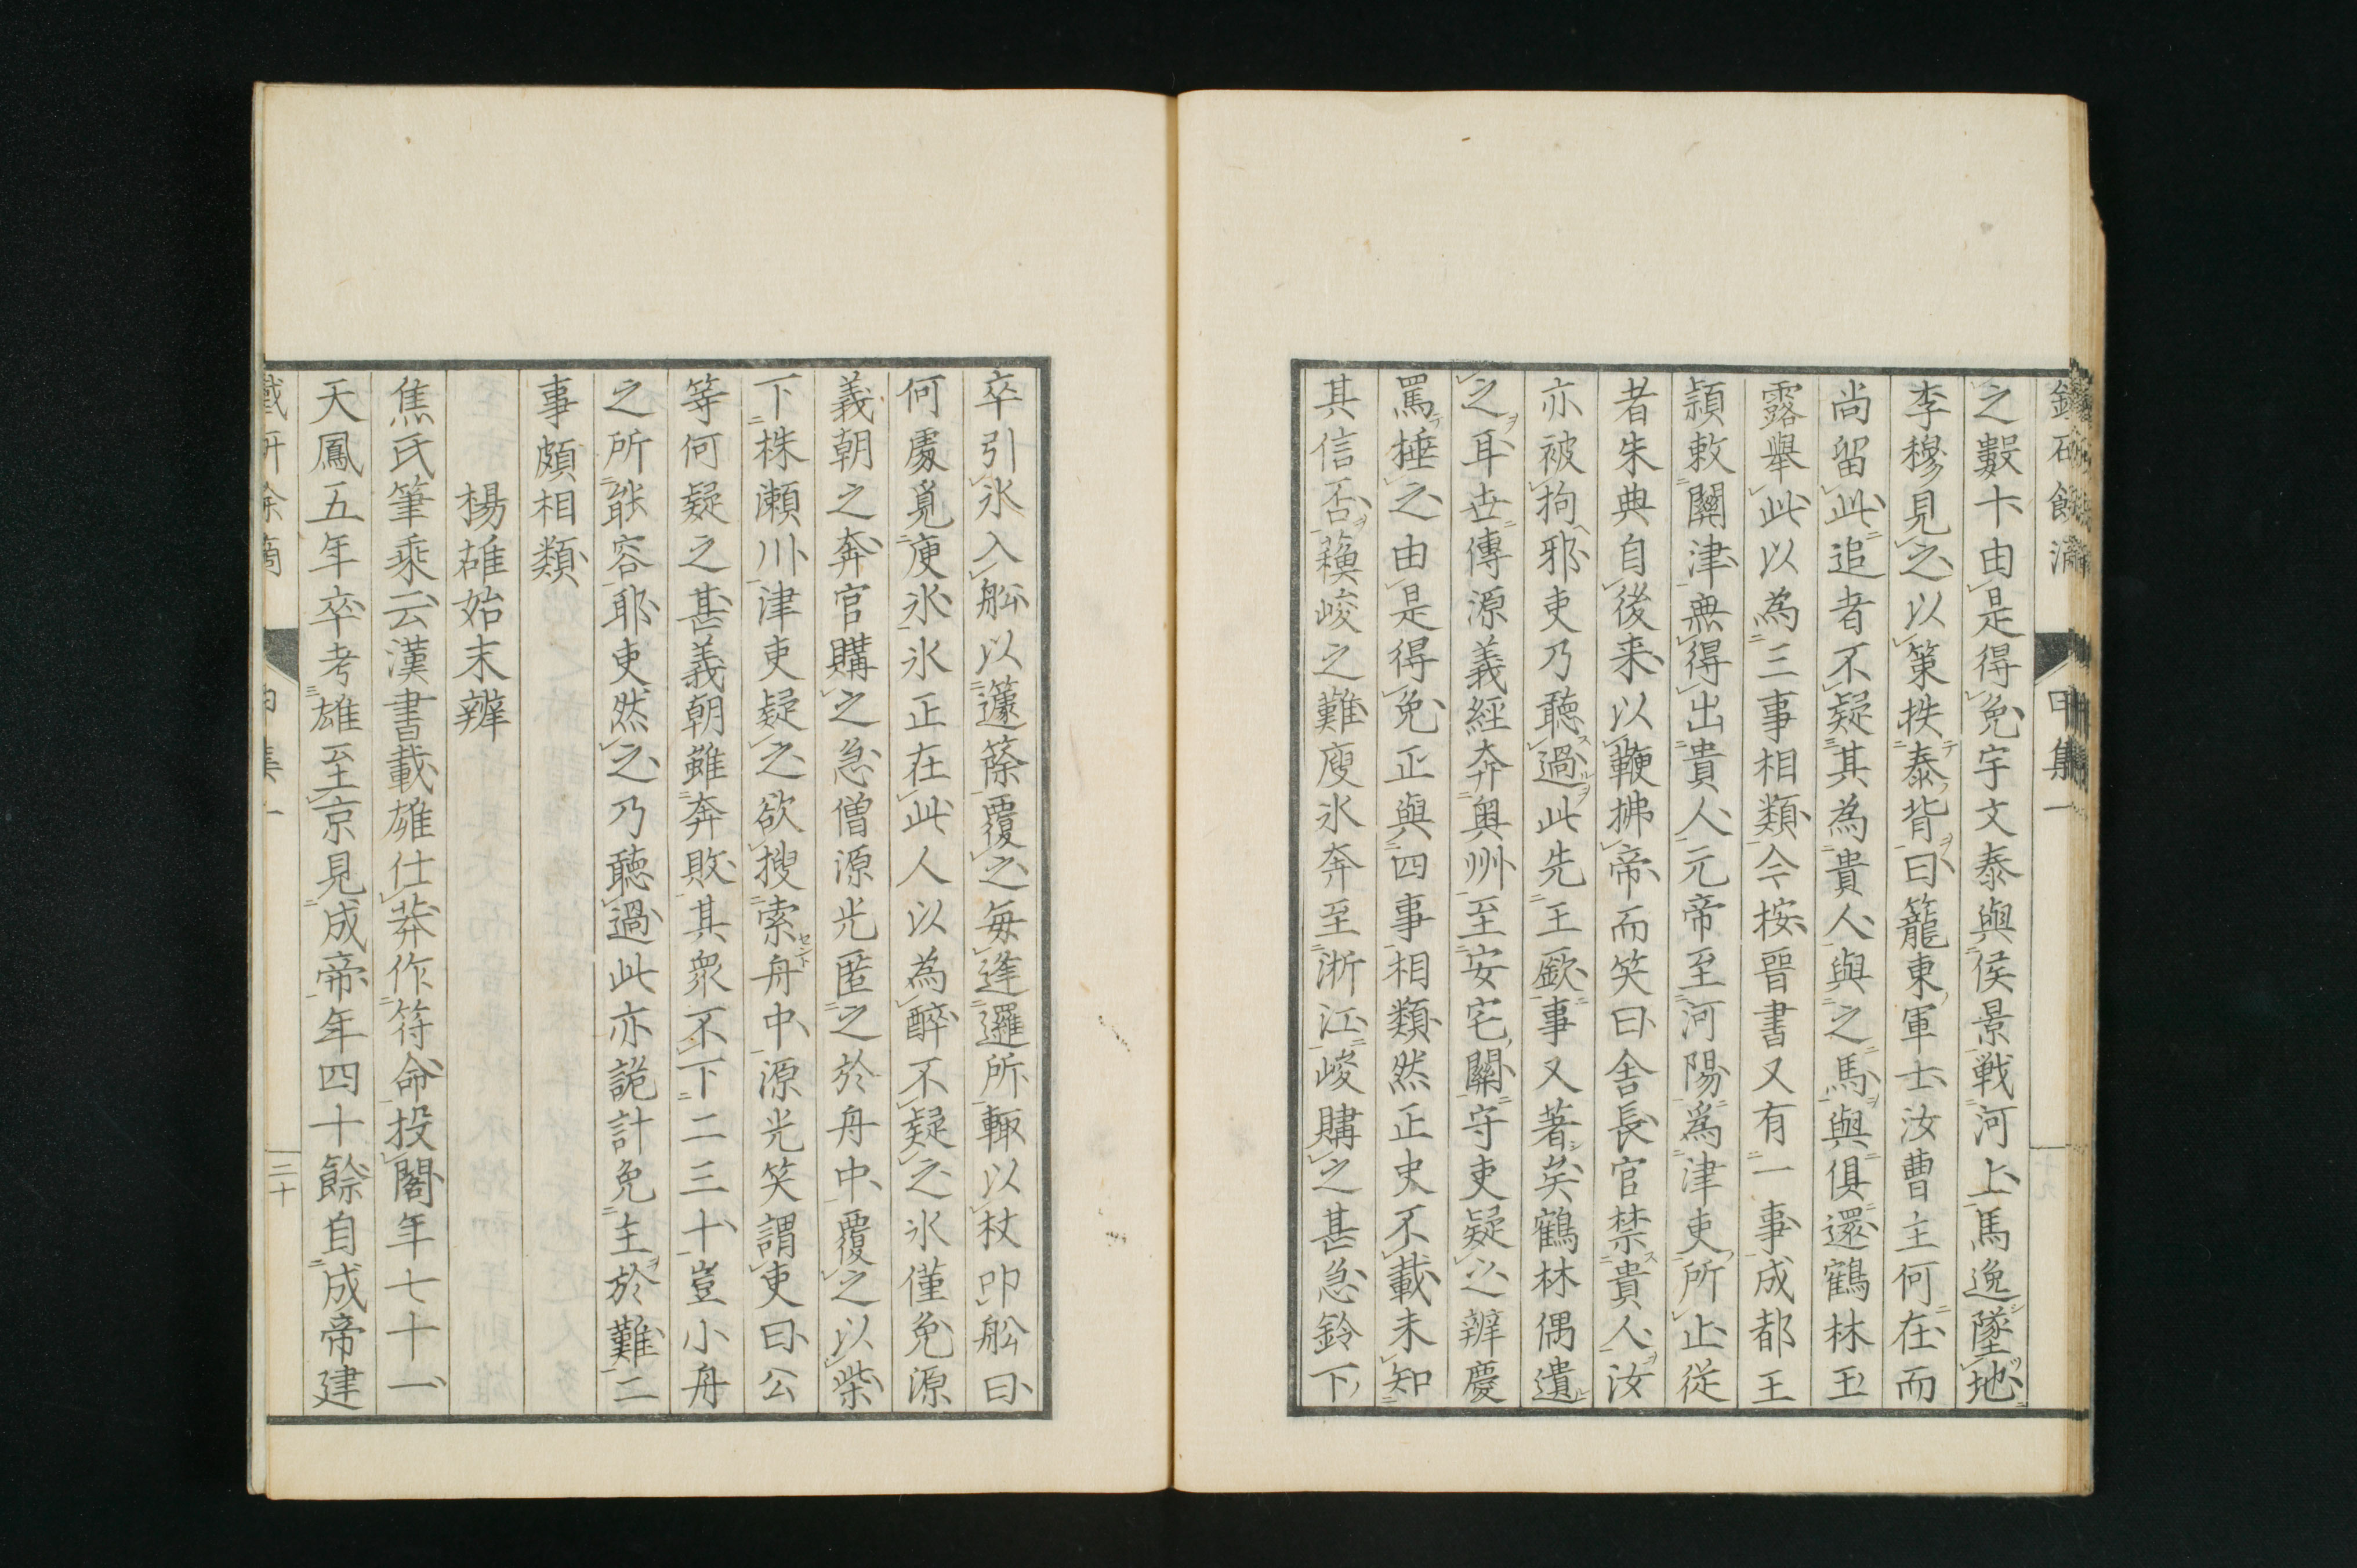 之數十由是得免宇文泰與侯景戦河上馬逸墜地
李穆見之以策抶泰背曰籠東軍士汝曹主何在而
尚留此追者不疑其為貴人與之馬與俱還鶴林玉
露舉此以為三事相類今按晋書又有一事成都王
潁敕關津無得出貴人元帝至河陽為津吏所止従
者朱典自後来以鞭拂帝而笑曰舎長官禁貴人汝
亦被拘邪吏乃聽過此先王歐事又著矣鶴林偶遺
之耳世傳源義經奔奥州至安宅關守吏疑之辨慶
罵捶之由是得免正與四事相類然正史不載未知
其信否蘓峻之難庾氷奔至淅江峻購之甚急鈴下
卒引氷入舩以籧篨覆之毎逢邏所輙以杖叩舩曰
何處覓庾氷氷正在此人以為醉不疑之氷僅免源
義朝之奔官購之急僧源光匿之於舟中覆之以柴
下株瀬川津吏疑之欲搜索舟中源光笑謂吏曰公
等何疑之甚義朝雖奔敗其衆不下二三十豈小舟
之所能容耶吏然之乃聽過此亦詭計免主於難二
事頗相類
楊雄始末辨
焦氏筆乘云漢書載雄仕莽作符命投閣年七十一
天鳳五年卒考雄至京見成帝年四十餘自成帝建
二十